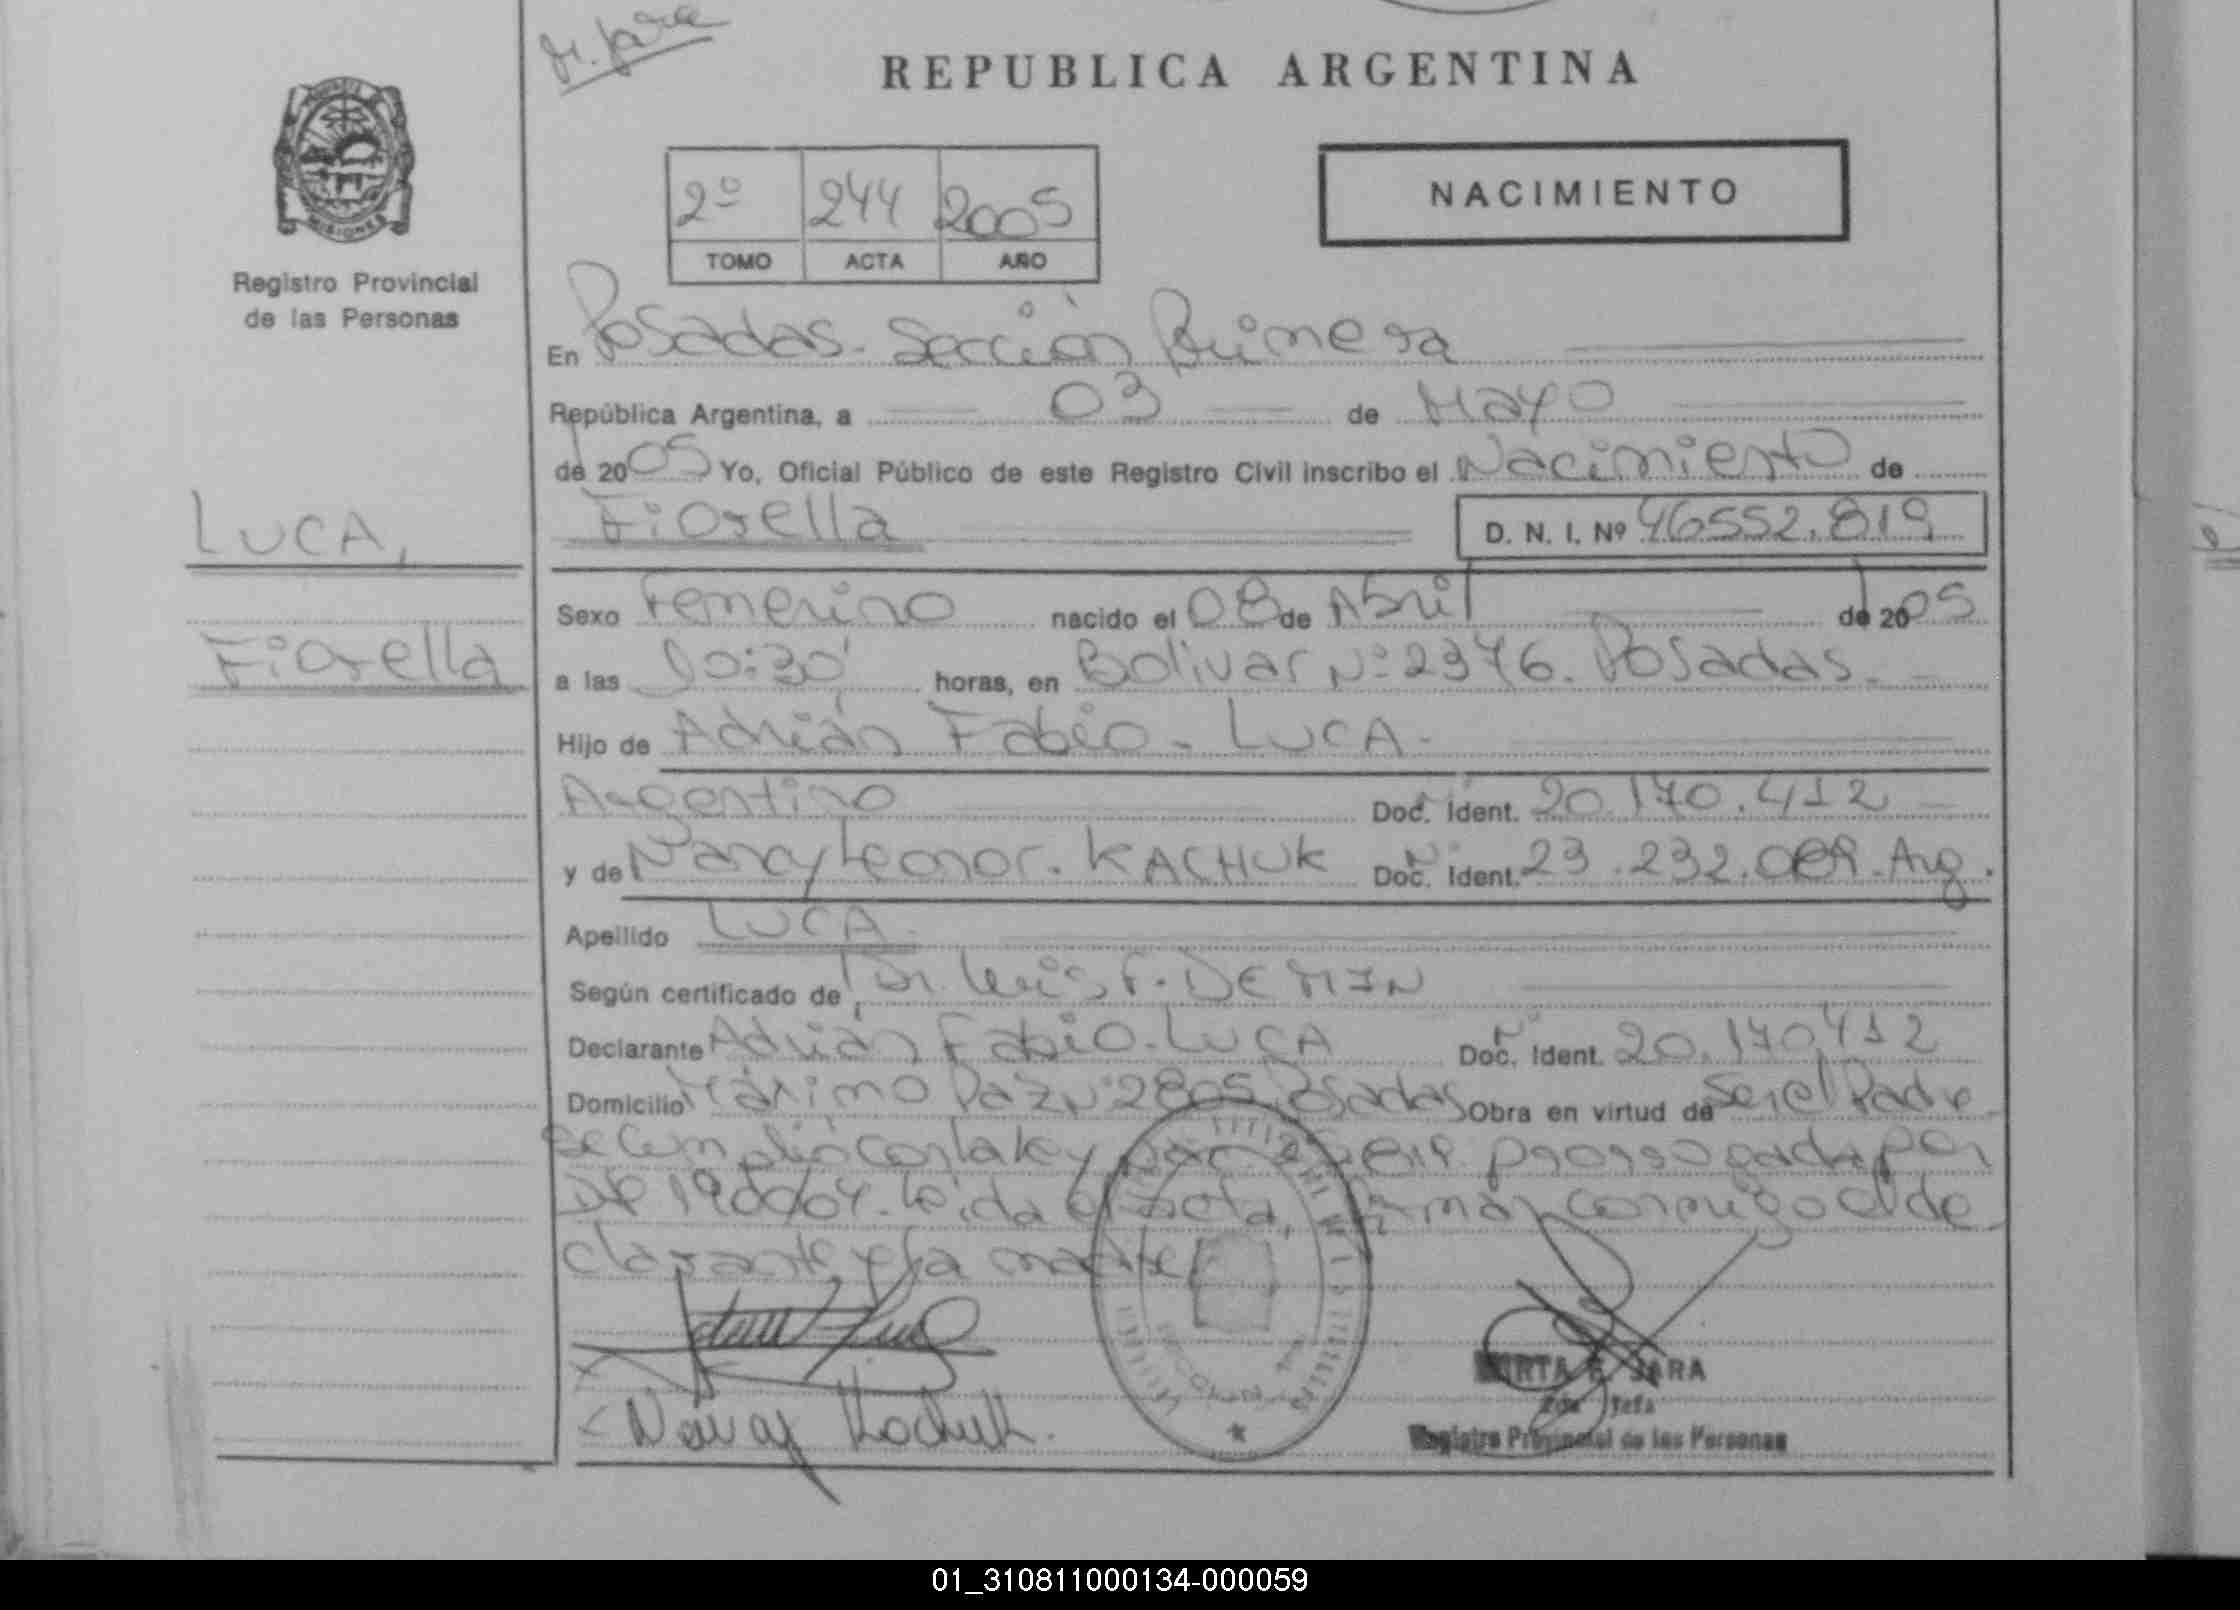 M. Jara
REPUBLICA ARGENTINA
MISIONES
2º 244 2005
TOMO ACTA AÑO
NACIMIENTO
Registro Provincial
de las Personas
En Posadas - Sección Primera
República Argentina, a 03 de Mayo
de 2005 Yo, Oficial Público de este Registro Civil inscribo el Nacimiento de
Fiorella D. N. I. Nº 46552.819
LUCA,
Fiorella
Sexo Femenino nacido el 08 de Abril de 2005
a las 10:30' horas, en Bolivar Nº 2376. Posadas.
Hijo de Adrián Fabio - LUCA.
Argentino Doc. Ident. 20.170.412
y de Nancy Leonor. KACHUK Doc. Ident. 23.232.089. Arg.
Apellido LUCA.
Según certificado de Dr. Luis F. DE MIN
Declarante Adrián Fabio. LUCA Doc. Ident. 20.170.412
Domicilio Máximo Paz Nº 2805 Posadas Obra en virtud de Ser el Padre
Se cumplió con la ley prorrogada por
Leida el acta, firman conmigo el de
clarante y la madre
Nancy Kachuk.
MIRTA E. JARA
Jefa
Registro Provincial de las Personas
01_310811000134-000059